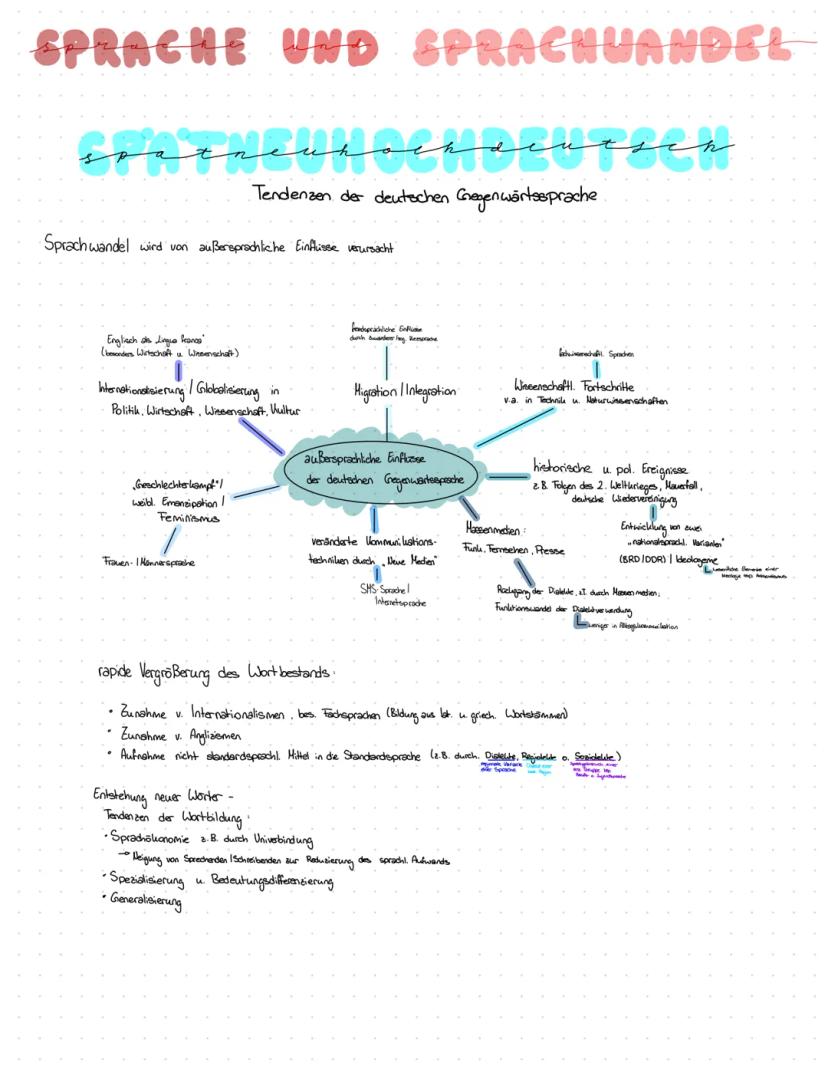 SPRACHE UND SPRACHWANDEL
SPÄTNEUHOCHDEUTSCH
spätneuhochdeutsch
Tendenzen der deutschen Gegenwärtssprache
Sprachwandel wird von außersprachliche Einflüsse verursacht
Englisch als „Lingua franca"
(besonders Wirtschaft u. Wissenschaft)
Internationalisierung / Globalisierung in
Politik, Wirtschaft, Wissenschaft, Kultur
fremdsprachliche Einflüsse
durch
Migration / Integration
fachwissenschaftl. Sprachen
Wissenschaftl. Fortschritte
v.a. in Technik u. Naturwissenschaften
außersprachliche Einflüsse
der deutschen Gegenwartssprache
historische u. pol. Ereignisse
z.B. Folgen des 2. Weltkrieges, Mauerfall,
deutsche Wiedervereinigung
Entwicklung von zwei
„nationalsprachl. Varianten"
(BRD/DDR) / Ideologeme
wesentliche Elemente einer
Ideologie
„Geschlechterkampf" /
weibl. Emanzipation /
Feminismus
Frauen- / Männersprache
veränderte Kommunikations-
techniken durch „Neue Medien"
SMS-Sprache /
Internetsprache
Massenmedien:
Funk, Fernsehen, Presse
Rückgang der Dialekte, z.T. durch Massenmedien;
Funktionswandel der Dialektverwendung
weniger in Alltagskommunikation
rapide Vergrößerung des Wortbestands:
• Zunahme v. Internationalismen, bes. Fachsprachen (Bildung aus lat. u. griech. Wortstämmen)
• Zunahme v. Anglizismen
• Aufnahme nicht standardsprachl. Mittel in die Standardsprache (z.B. durch Dialekte, Regiolekte o. Soziolekte)
regionale Variante
einer Sprache
Entstehung neuer Wörter -
Tendenzen der Wortbildung:
• Sprachökonomie z.B. durch Univerbindung
→ Neigung von Sprechenden / Schreibenden zur Reduzierung des sprachl. Aufwands
• Spezialisierung u. Bedeutungsdifferenzierung
• Generalisierung